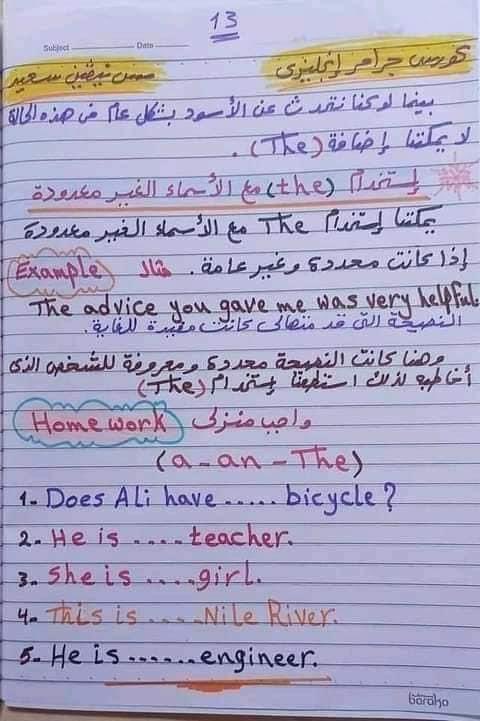 13
Subject Date
كورس جرامر إنجليزي
مس نيڤين سعيد
بينما لو كنا نتحدث عن الأسود بشكل عام فى هذه الحالة
لا يمكننا إضافة (The).
إستخدام (the) مع الأسماء الغير معدودة
يمكننا إستخدام The مع الأسماء الغير معدودة
إذا كانت محددة وغير عامة. مثال Example
The advice you gave me was very helpful.
النصيحة التى قد منحتها لى كانت مفيدة للغاية.
وهنا كانت النصيحة محددة ومعروفة للشخص الذى
أخاطبه لذلك استطعنا إستخدام (The)
Homework واجب منزلى
(a-an-The)
1- Does Ali have ...... bicycle?
2- He is .... teacher.
3- She is .....girl.
4- This is .....Nile River.
5- He is .......engineer.
baraka